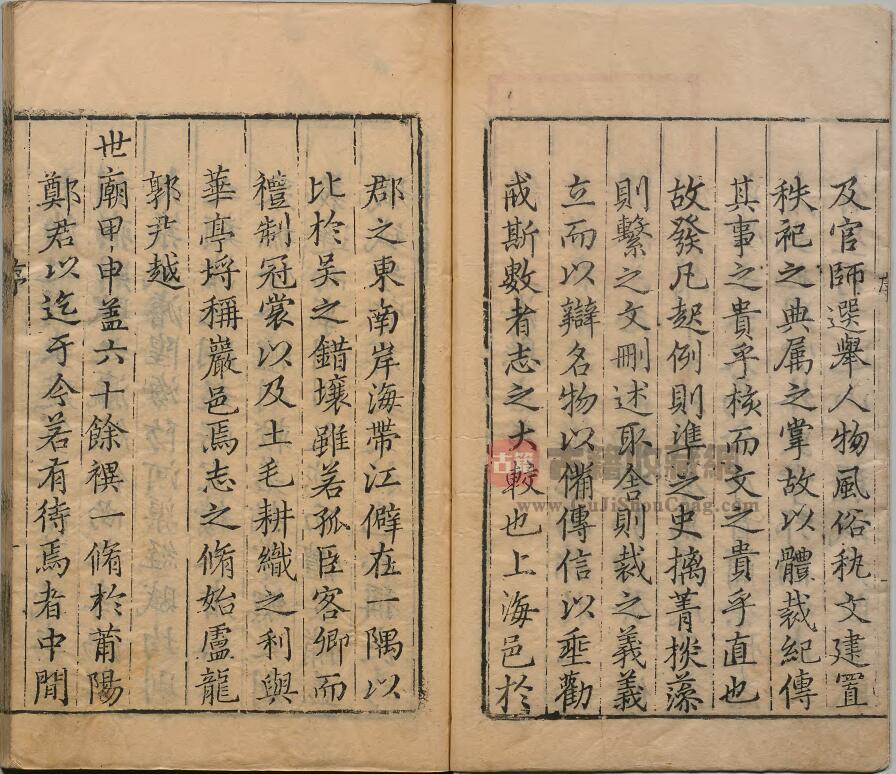 及官師選舉人物風俗秇文建置
秩祀之典属之掌故以體裁紀傳
其事之貴乎核而文之貴乎直也
故發凡起例則準之史摛菁掞藻
則繫之文刪述取舍則裁之義義
立而以辯名物以備傳信以垂勸
戒斯數者志之大較也上海邑於
郡之東南岸海帶江僻在一隅以
比於吴之錯壤雖若孤臣客卿而
禮制冠裳以及土毛耕織之利與
華亭埒稱巖邑焉志之脩始盧龍
郭尹越
世廟甲申盖六十餘禩一脩於莆陽
鄭君以迄于今若有待焉者中間
序
古籍
www.GuJiShouCang.com